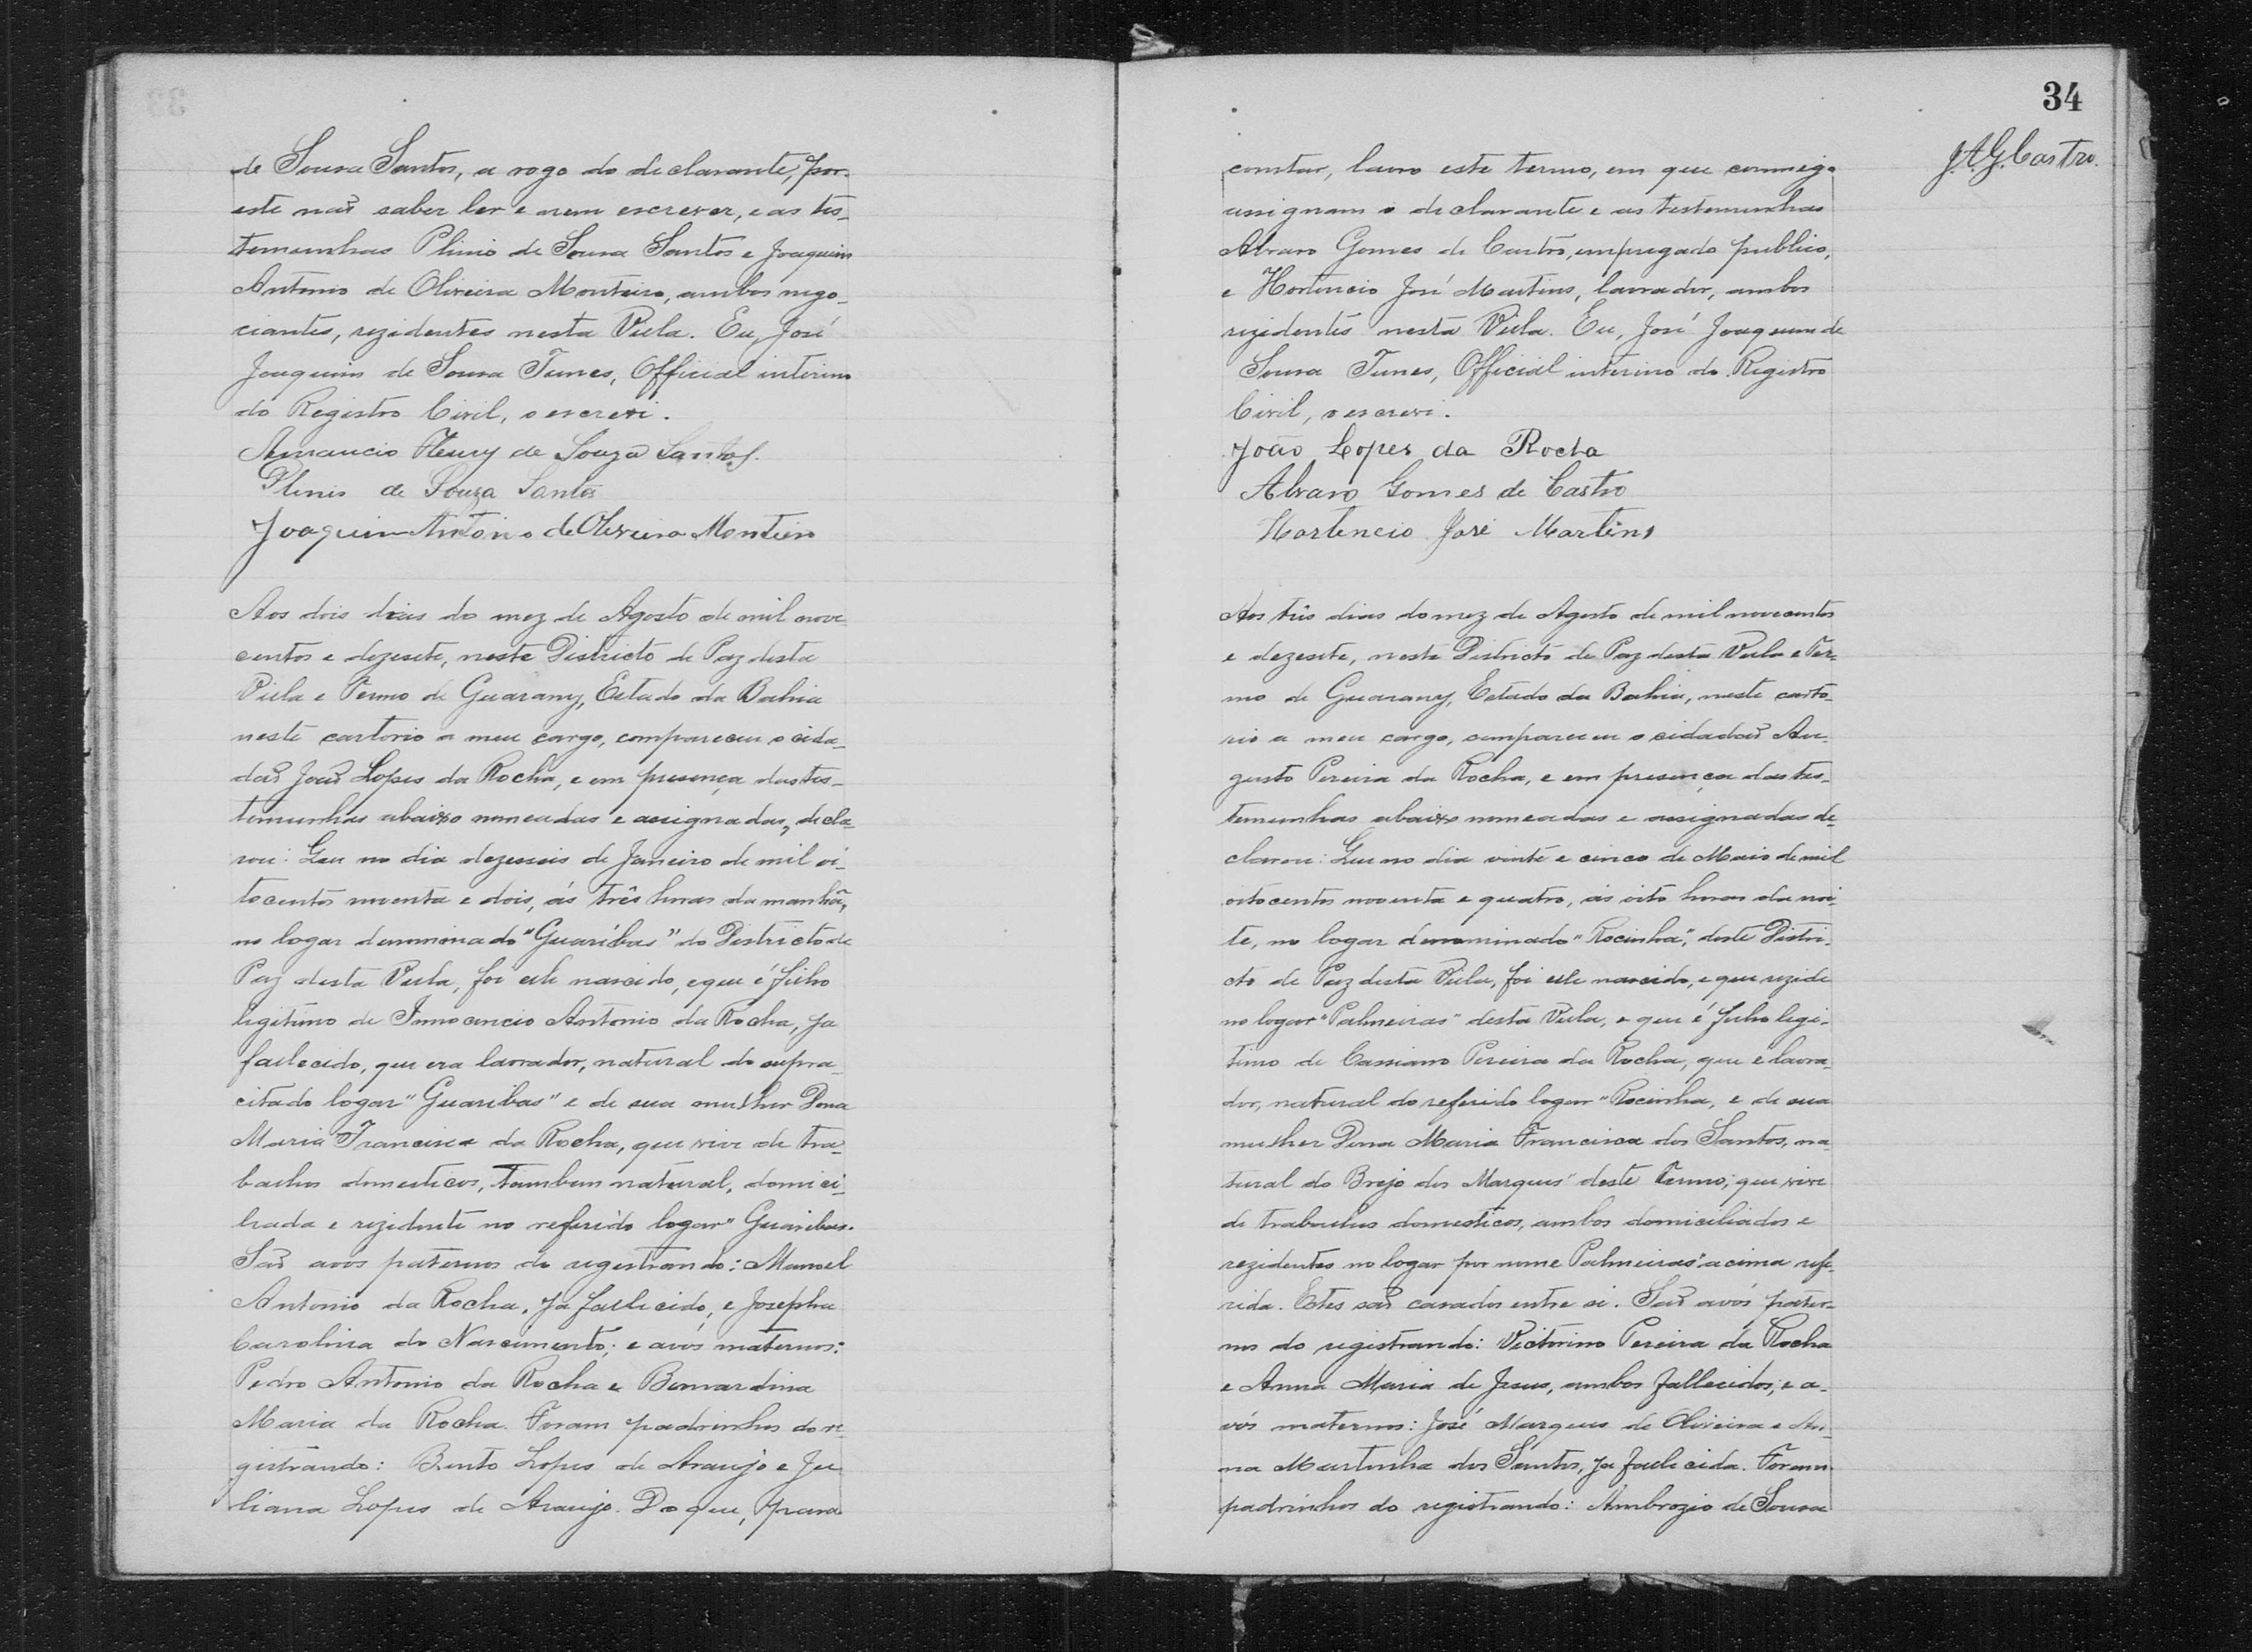 de Sousa Santos, a rogo do declarante, por
este não saber ler e nem escrever, e as tes-
temunhas Plinio de Sousa Santos e Joaquim
Antonio de Oliveira Monteiro, ambos nego-
ciantes, rezidentes nesta Villa. Eu, José
Joaquim de Sousa Tunes, Official interino
do Registro Civil, o escrevi.
Amancio Fleury de Souza Santos.
Plinio de Souza Santos
Joaquim Antonio de Oliveira Monteiro
Aos dois dias do mez de Agosto de mil nove-
centos e dezesete, neste Districto de Paz desta
Villa e Termo de Guarany, Estado da Bahia
neste cartorio a meu cargo, compareceu o cida-
dão João Lopes da Rocha, e em presença das tes-
temunhas abaixo nomeadas e assignadas, decla-
rou: Que no dia dezesseis de Janeiro de mil oi-
tocentos noventa e dois, ás três horas da manhã,
no logar denominado "Guaribas" do Districto de
Paz desta Villa, foi elle nascido, e que é filho
legitimo de Innocencio Antonio da Rocha, ja
fallecido, que era lavrador, natural do supra-
citado logar "Guaribas" e de sua mulher Dona
Maria Francisca da Rocha, que vive de tra-
balhos domesticos, tambem natural, domici-
liada e rezidente no referido logar "Guaribas.
São avós paternos do registrando: Manoel
Antonio da Rocha, ja fallecido, e Josepha
Carolina do Nascimento; e avós maternos:
Pedro Antonio da Rocha e Bernardina
Maria da Rocha. Foram padrinhos do re-
gistrando: Bento Lopes de Araujo e Ju-
liana Lopes de Araujo. Do que, para
34
J.A.G.Castro.
constar, lavro este termo, em que commigo
assignam o declarante e as testemunhas
Alvaro Gomes de Castro, empregado publico,
e Hortencio José Martins, lavrador, ambos
rezidentes nesta Villa. Eu, José Joaquim de
Sousa Tunes, Official interino do Registro
Civil, o escrevi.
João Lopes da Rocha
Alvaro Gomes de Castro
Hortencio José Martins
Aos três dias do mez de Agosto de mil novecentos
e dezesete, neste Districto de Paz desta Villa e Ter-
mo de Guarany, Estado da Bahia, neste carto-
rio a meu cargo, compareceu o cidadão Au-
gusto Pereira da Rocha, e em presença das tes-
temunhas abaixo nomeadas e assignadas de-
clarou: Que no dia vinte e cinco de Maio de mil
oitocentos noventa e quatro, ás oito horas da noi-
te, no logar denominado "Rocinha", deste Distri-
cto de Paz desta Villa, foi elle nascido, e que rezide
no logar "Palmeiras" desta Villa, e que é filho legi-
timo de Cassiano Pereira da Rocha, que é lavra-
dor, natural do referido logar "Rocinha, e de sua
mulher Dona Maria Francisca dos Santos, na-
tural do Brejo dos Marques" deste Termo; que vive
de trabalhos domesticos, ambos domiciliados e
rezidentes no logar por nome Palmeiras" acima refe-
rida. Estes são casados entre si. São avós pater-
nos do registrando: Victorino Pereira da Rocha
e Anna Maria de Jesus, ambos fallecidos; e a-
vós maternos: José Marques de Oliveira e An-
na Martinha dos Santos, ja fallecida. Foram
padrinhos do registrando: Ambrozio de Sousa